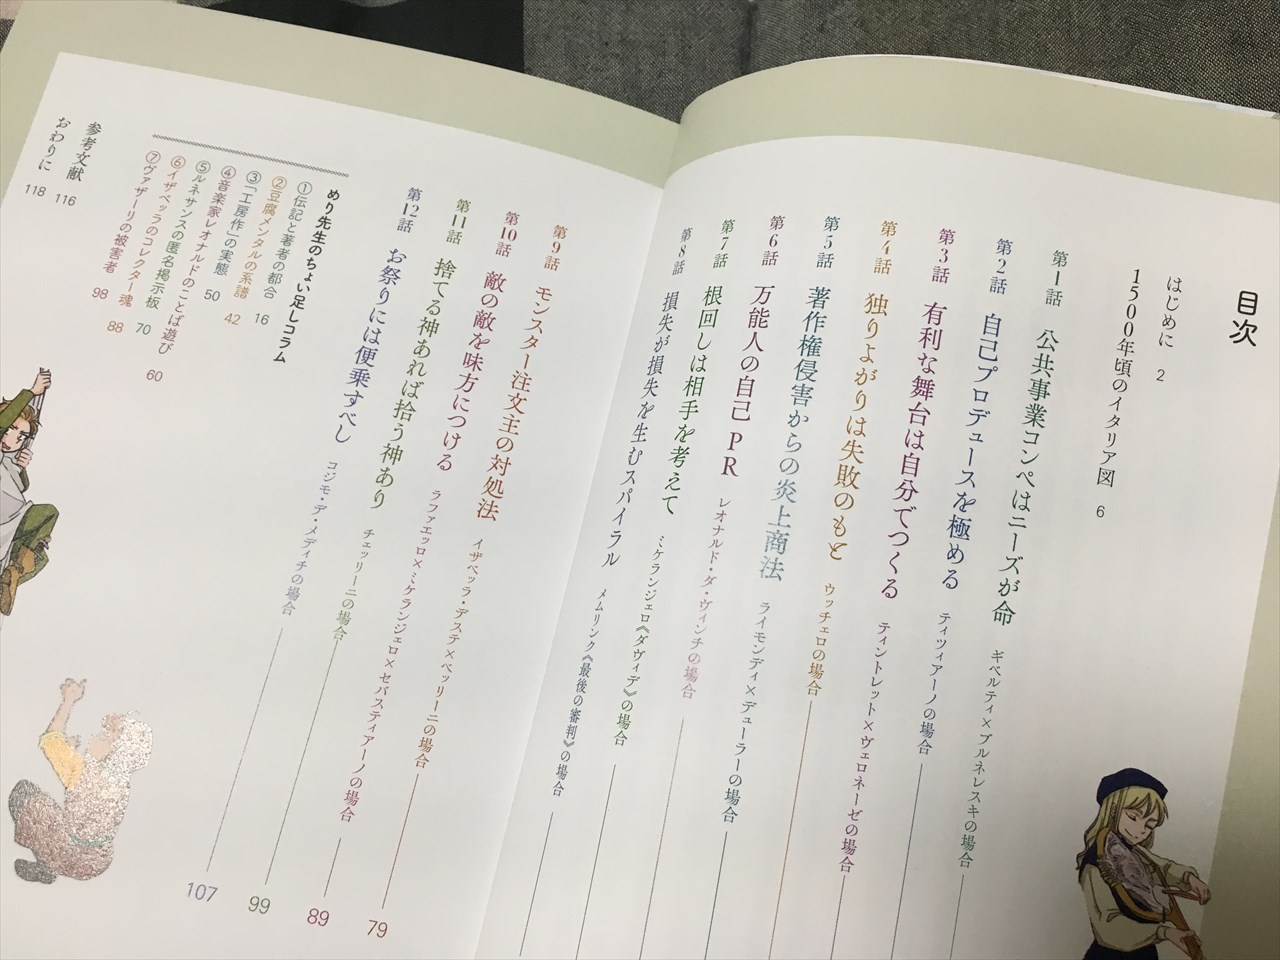 目次
はじめに 2
1500年頃のイタリア図 6
第1話 公共事業コンペはニーズが命 ギベルティ×ブルネレスキの場合
第2話 自己プロデュースを極める ティツィアーノの場合
第3話 有利な舞台は自分でつくる ティントレット×ヴェロネーゼの場合
第4話 独りよがりは失敗のもと ウッチェロの場合
第5話 著作権侵害からの炎上商法 ライモンディ×デューラーの場合
第6話 万能人の自己PR レオナルド・ダ・ヴィンチの場合
第7話 根回しは相手を考えて ミケランジェロ《ダヴィデ》の場合
第8話 損失が損失を生むスパイラル メムリンク《最後の審判》の場合
第9話 モンスター注文主の対処法 イザベッラ・デステ×ベッリーニの場合 79
第10話 敵の敵を味方につける ラファエッロ×ミケランジェロ×セバスティアーノの場合 89
第11話 捨てる神あれば拾う神あり チェッリーニの場合 99
第12話 お祭りには便乗すべし コジモ・デ・メディチの場合 107
めり先生のちょい足しコラム
①伝記と著者の都合 16
②豆腐メンタルの系譜 42
③「工房作」の実態 50
④音楽家レオナルドのことば遊び 60
⑤ルネサンスの匿名掲示板 70
⑥イザベッラのコレクター魂 88
⑦ヴァザーリの被害者 98
参考文献 116
おわりに 118